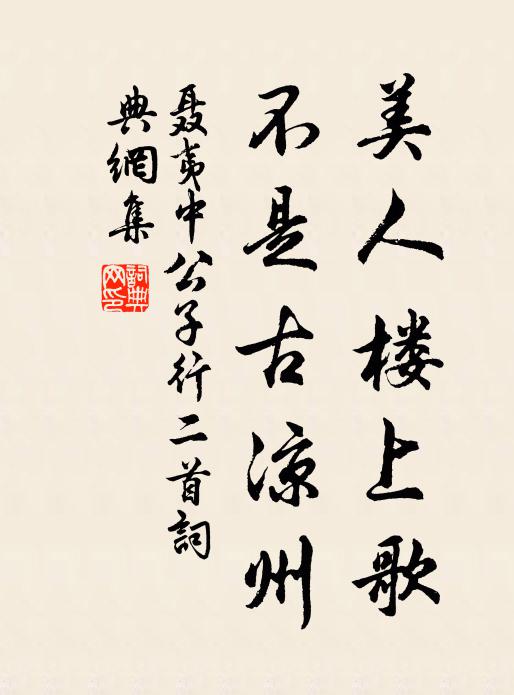 美人楼上歌
不是古凉州
聂夷中公子行二首詞
典網集
詞典网印